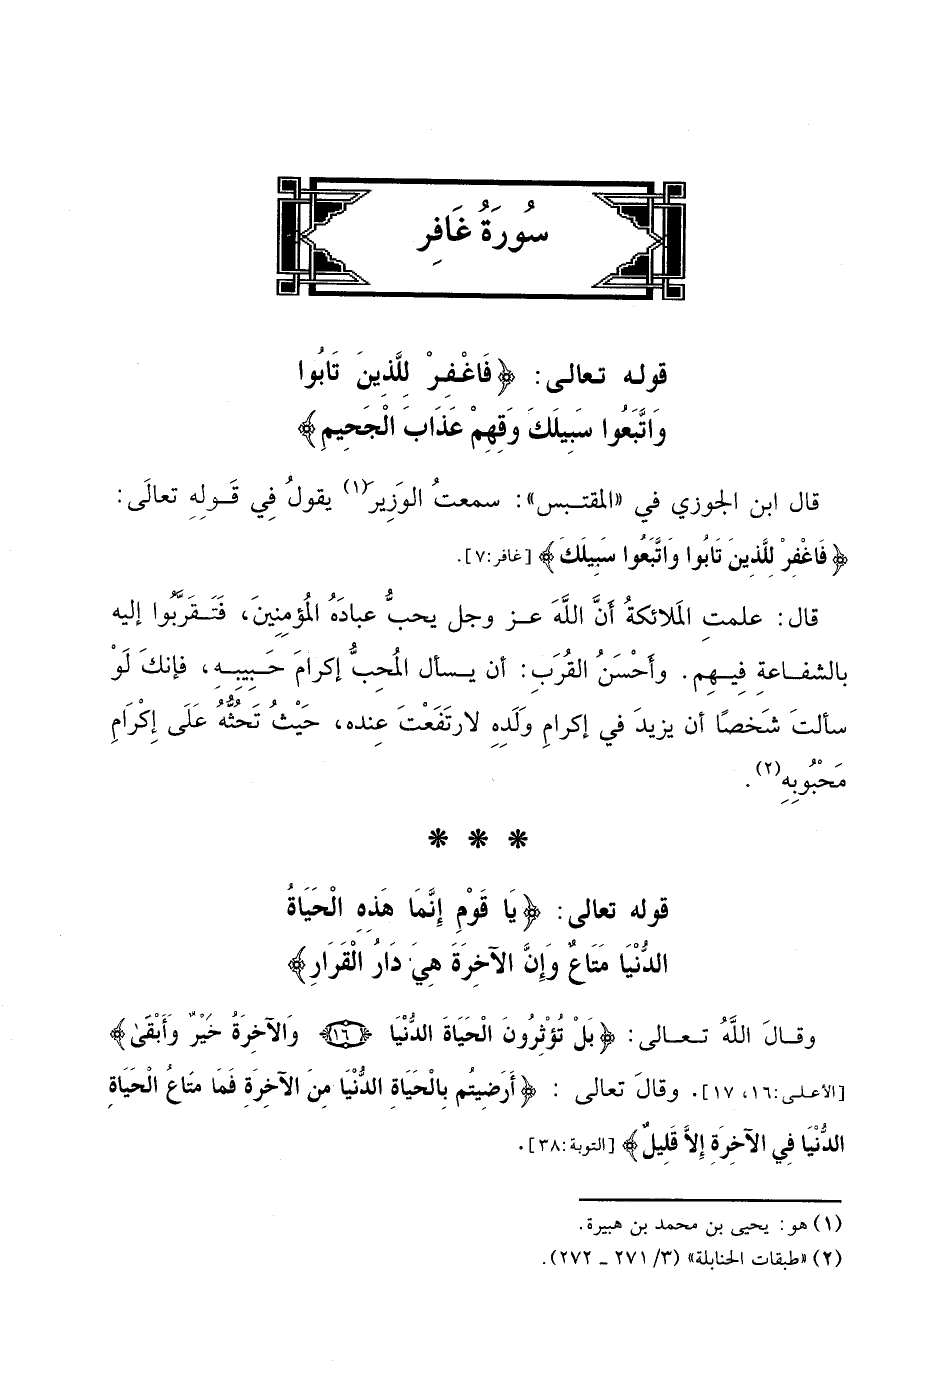 سُورَةُ غَافِر
قوله تعالى: ﴿فَاغْفِرْ لِلَّذِينَ تَابُوا
وَاتَّبَعُوا سَبِيلَكَ وَقِهِمْ عَذَابَ الْجَحِيمِ﴾
قال ابن الجوزي في «المقتبس»: سمعتُ الوَزِيرَ(١) يقولُ فِي قَولِهِ تعالَى:
﴿فَاغْفِرْ لِلَّذِينَ تَابُوا وَاتَّبَعُوا سَبِيلَكَ﴾ [غافر:٧].
قال: علمتِ المَلائكةُ أَنَّ اللَّهَ عز وجل يحبُّ عبادَهُ المُؤمنِينَ، فَتَقَرَّبُوا إليه
بالشفاعةِ فِيهِم. وأَحْسَنُ القُرَبِ: أن يسأل المُحبُّ إكرامَ حَبِيبِهِ، فإنكَ لَوْ
سألتَ شَخصًا أن يزيدَ في إكرامِ ولَدِهِ لارتَفَعْتَ عِنده، حَيْثُ تَحُثُّهُ عَلَى إكْرَامِ
مَحْبُوبِهِ(٢).
* * *
قوله تعالى: ﴿يَا قَوْمِ إِنَّمَا هَذِهِ الْحَيَاةُ
الدُّنْيَا مَتَاعٌ وَإِنَّ الآخِرَةَ هِيَ دَارُ الْقَرَارِ﴾
وقَالَ اللَّهُ تعالى: ﴿بَلْ تُؤْثِرُونَ الْحَيَاةَ الدُّنْيَا ﴿١٦﴾ وَالآخِرَةُ خَيْرٌ وَأَبْقَى﴾
[الأعلى:١٦، ١٧]. وقالَ تعالى : ﴿أَرَضِيتُم بِالْحَيَاةِ الدُّنْيَا مِنَ الآخِرَةِ فَمَا مَتَاعُ الْحَيَاةِ
الدُّنْيَا فِي الآخِرَةِ إِلاَّ قَلِيلٌ﴾ [التوبة:٣٨].
(١) هو: يحيى بن محمد بن هبيرة.
(٢) «طبقات الحنابلة» (٣/ ٢٧١ - ٢٧٢).